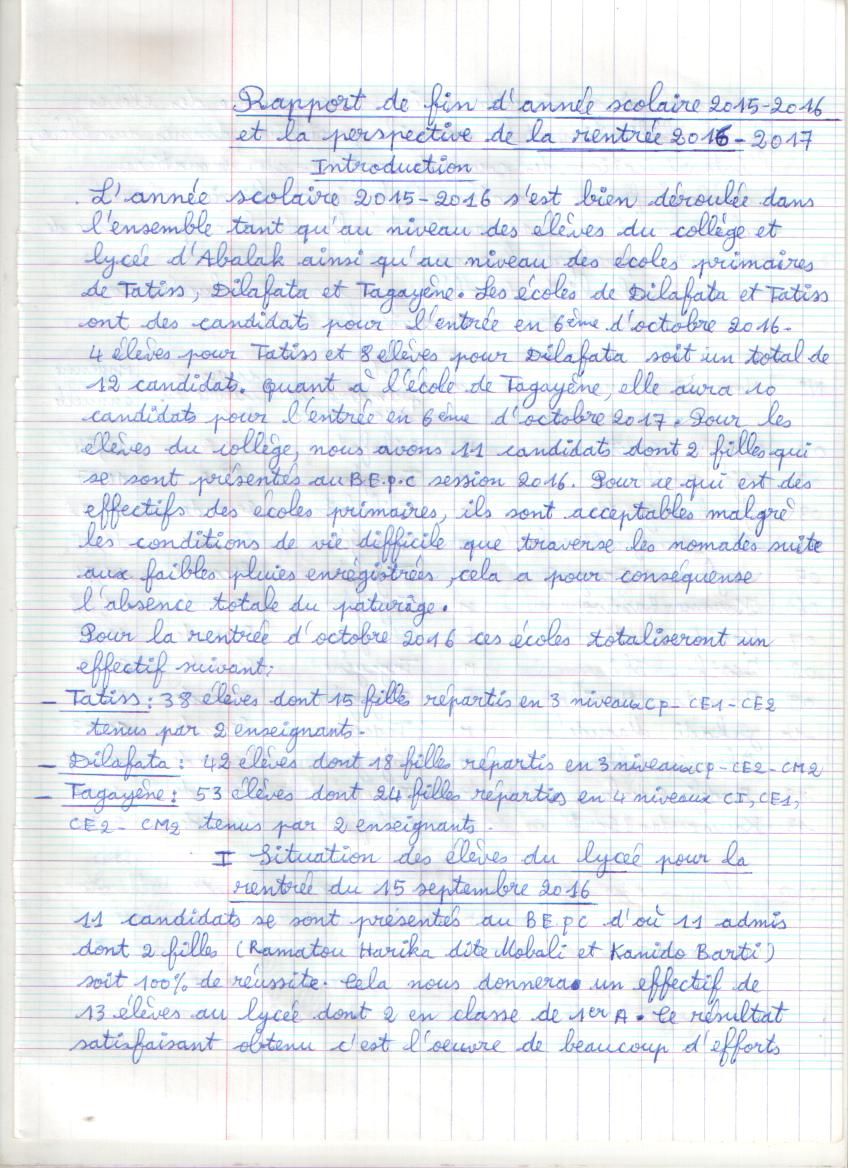 Rapport de fin d'année scolaire 2015-2016
et la perspective de la rentrée 2016-2017
Introduction
L'année scolaire 2015-2016 s'est bien déroulée dans
l'ensemble tant qu'au niveau des élèves du collège et
lycée d'Abalak ainsi qu'au niveau des écoles primaires
de Tatiss, Dilafata et Tagayène. Les écoles de Dilafata et Tatiss
ont des candidats pour l'entrée en 6ème d'octobre 2016-
4 élèves pour Tatiss et 8 élèves pour Dilafata soit un total de
12 candidat. quant à l'école de Tagayène, elle aura 10
candidats pour l'entrée en 6ème d'octobre 2017. Pour les
élèves du collège, nous avons 11 candidats dont 2 filles qui
se sont présentés au B.E.p.c session 2016. Pour ce qui est des
effectifs des écoles primaires, ils sont acceptables malgré
les conditions de vie difficile que traverse les nomades suite
aux faibles pluies enrégistrées, cela a pour conséquense
l'absence totale du paturâge.
Pour la rentrée d'octobre 2016 ces écoles totaliseront un
effectif suivant:
- Tatiss : 38 élèves dont 15 filles répartis en 3 niveaux Cp- CE1- CE2
tenus par 2 enseignants.
- Dilafata : 42 élèves dont 18 filles répartis en 3 niveaux cp-CE2-CM2
- Tagayène : 53 élèves dont 24 filles répartis en 4 niveaux CI, CE1,
CE2- CM2 tenus par 2 enseignants.
I Situation des élèves du lyceé pour la
rentrée du 15 septembre 2016
11 candidats se sont présentés au B E.p.c d'où 11 admis
dont 2 filles (Ramatou Harika dite Mobali et Kanido Barti)
soit 100% de réussite. Cela nous donnera un effectif de
13 élèves au lycée dont 2 en classe de 1er A. Ce résultat
satisfaisant obtenu c'est l'oeuvre de beaucoup d'efforts